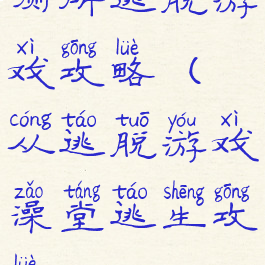 测所逃脱游
xì gōng lüè
戏攻略（
cóng táo tuō yóu xì
从逃脱游戏
zǎo táng táo shēng gōng
澡堂逃生攻
lüè